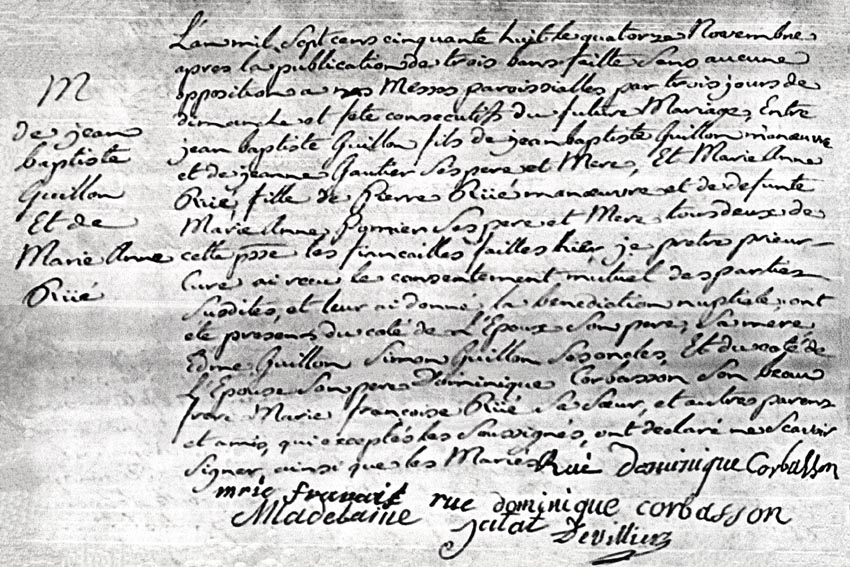 M
de jean
baptiste
Guillon
Et de
Marie Anne
Rüé
L'an mil Sept cens cinquante huit le quatorze Novembre
apres la publication de trois bans faitte Sans aucune
opposition a nos Messes paroissialles par trois jours de
dimanche et fete consecutifs du future Mariage, Entre
jean baptiste Guillon fils de jean baptiste Guillon manœuvre
et de jeanne Gautier Ses pere et Mere, Et Marie Anne
Rüé fille de Pierre Rüé manœuvre et de defunte
Marie Anne Ses pere et Mere tous deux de
cette psse les fiancailles faittes hier je pretre prieur
Curé ai recu le consentement mutuel des parties
Susdites, et leur ai donné la benediction nuptiale, ont
eté presens du coté de L'Epoux Son pere, Sa mere
Edme Guillon Simon Guillon Ses oncles, Et du coté de
L'Epouse Son pere Dominique Corbasson Son beau
frere Marie françoise Rüé Sa Sœur, et autres parens
et amis, qui exceptés les Soussignés, ont declaré ne Scavoir
Signer, ainsi que les Mariés Rüé Dominique Corbasson
mrie franais rue dominique corbasson
Madelaine
Devilliers